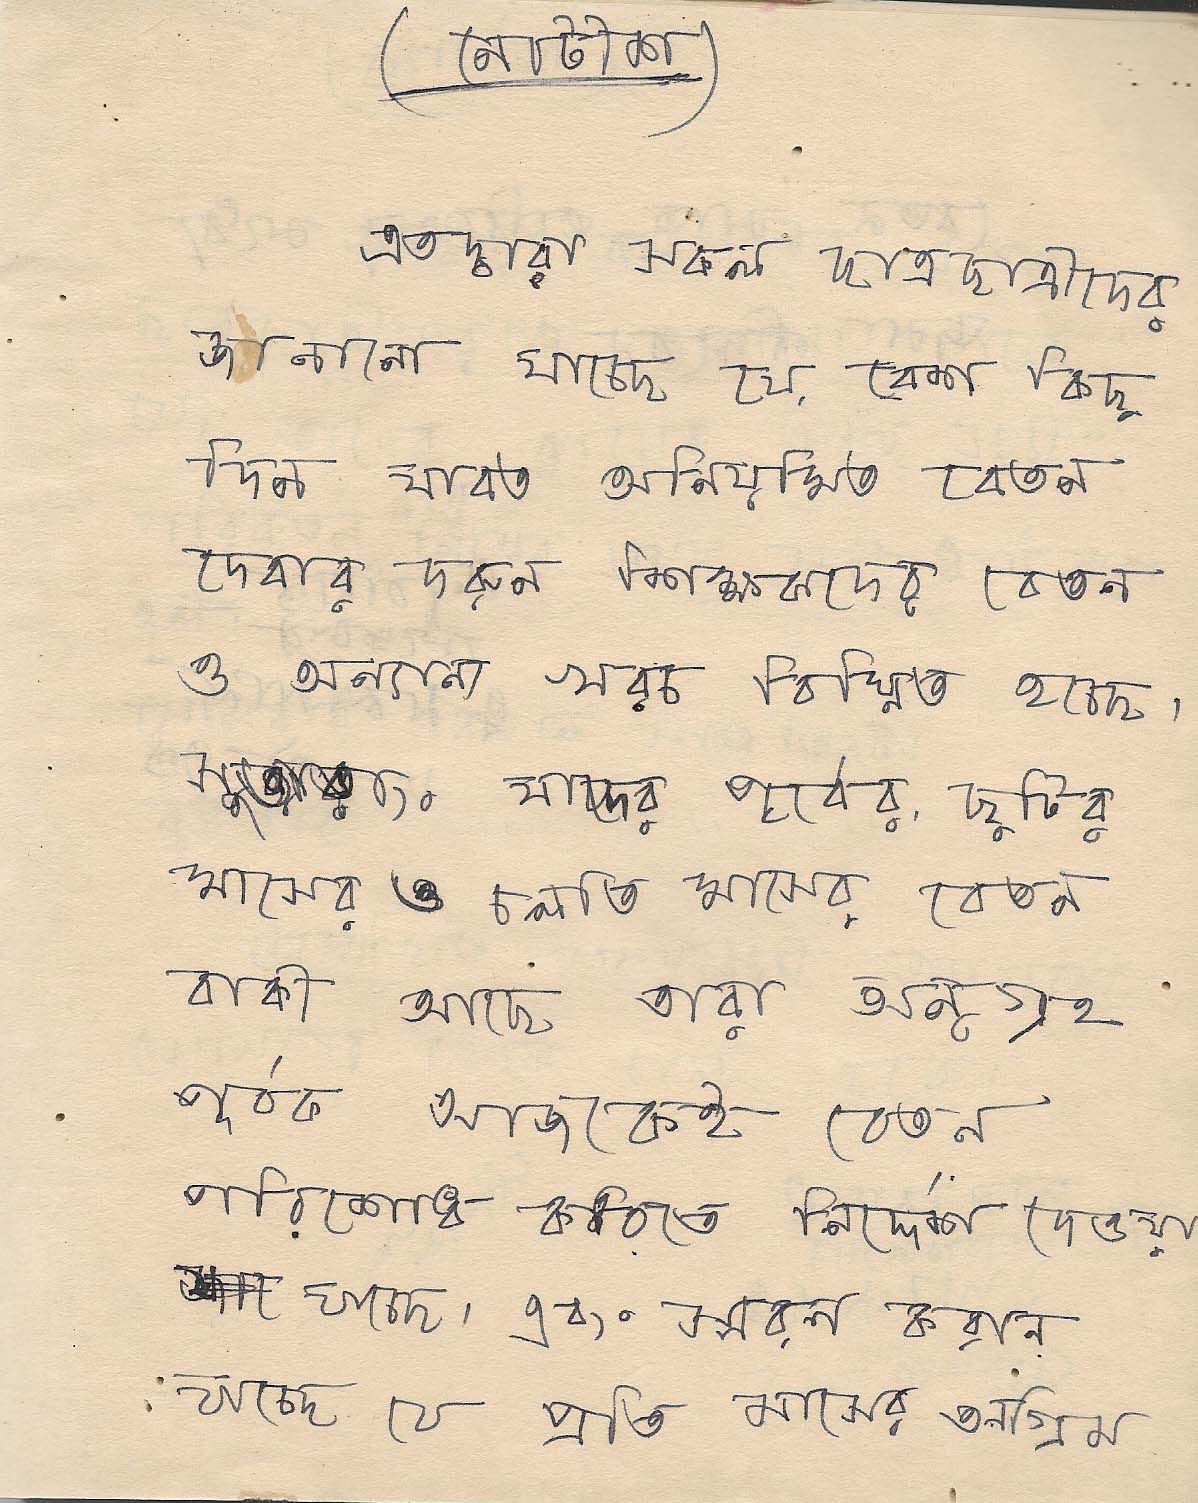 (নোটীশ)
এতদ্বারা সকল ছাত্রছাত্রীদের
জানানো যাচ্ছে যে, বেশ কিছু
দিন যাবত অনিয়মিত বেতন
দেবার দরুন শিক্ষকদের বেতন
ও অন্যান্য খরচ বিঘ্নিত হচ্ছে,
সুতরাং যাদের পূর্বের, ছুটির
মাসের ও চলতি মাসের বেতন
বাকী আছে তারা অনুগ্রহ
পূর্বক আজকেই বেতন
পরিশোধ করিতে নির্দ্দেশ দেওয়া
যাচ্ছে, এবং স্মরণ করান
যাচ্ছে যে প্রতি মাসের অগ্রিম